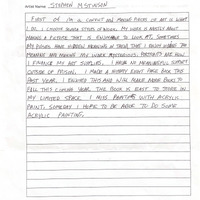 Artist Name: STEPHEN M STINSON
FIRST OF I'M A CONVICT AND MAKING PIECES OF ART IS WHAT
I DO. I CREATE SEVERAL STYLES OF DESIGN. MY WORK IS MOSTLY ABOUT
MAKING A PICTURE THAT IS ENJOYABLE TO LOOK AT. SOMETIMES
MY PIECES HAVE HIDDEN MEANING IN THEM THAT I ENJOY
MEANING AND MAKING MY WORK MYSTERIOUS. PORTRAITS ARE HOW
I FINANCE MY ART SUPPLIES. I HAVE NO MEANINGFUL SUPPORT
OUTSIDE OF PRISON. I MADE A HOBBY BOOK PAGE BACK THE
PAST YEAR. I ENJOYED THIS AND WILL MAKE MORE BOOKS TO
FILL THIS COMING YEAR. THE BOOK IS EASY TO STORE IN
MY LIMITED SPACE. I MISS PAINTING WITH ACRYLIC
PAINT. SOMEDAY I HOPE TO BE ABLE TO DO SOME
ACRYLIC PAINTING.